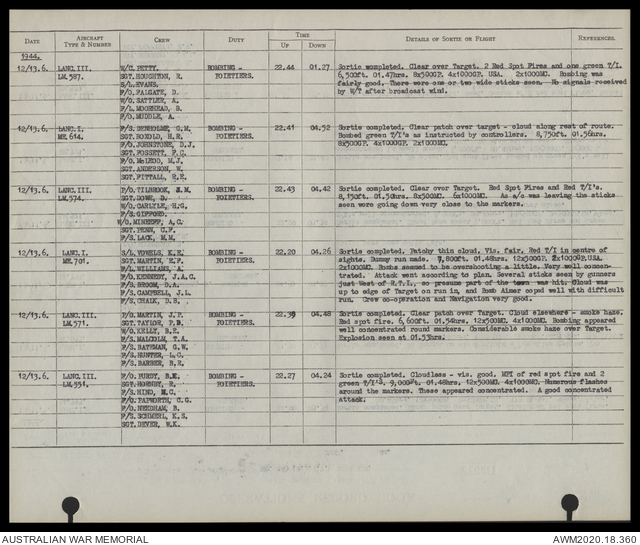 DATE AIRCRAFT TYPE & NUMBER CREW DUTY TIME UP DOWN DETAILS OF SORTIE OR FLIGHT REFERENCES.
1944.
12/13.6. LANC.III. W/C. PETTY. BOMBING - 22.44 01.27 Sortie completed. Clear over Target. 2 Red Spot Fires and one green T/I.
LM.587. SGT. HOUGHTON, R. POIETIERS. 6,500ft. 01.47hrs. 8x500GP. 4x1000GP. USA. 2x1000MC. Bombing was
S/L. EVANS. fairly good. There were one or two wide sticks seen. No signals received
F/O. FALGATE, D. by W/T after broadcast wind.
W/O. SATTLER, A.
F/L. MOORHEAD, B.
F/O. MUDDLE, A.
12/13.6. LANC.I. F/S. DENHOLME, G.M. BOMBING - 22.41 04.52 Sortie completed. Clear patch over target - cloud along rest of route.
ME.614. SGT. RONOLD, H.R. POIETIERS. Bombed green T/I's as instructed by controllers. 8,750ft. 01.56hrs.
F/O. JOHNSTONE, D.J. 8x500GP. 4x1000GP. 2x1000MC.
SGT. FOSSETT, F.C.
F/O. McLEOD, M.J.
SGT. ANDERSON, W.
SGT. PITTALL, R.E.
12/13.6. LANC.III. P/O. TILBROOK, S.M. BOMBING - 22.43 04.42 Sortie completed. Clear over Target. Red Spot Fires and Red T/I's.
LM.574. SGT. GOWE, D. POIETIERS. 8,150ft. 01.50hrs. 8x500MC. 6x1000MC. As a/c was leaving the sticks
W/O. CARLYLE, H.G. seen were going down very close to the markers.
F/S. GIFFORD.
W/O. MINHOFF, A.C.
SGT. PENN, C.F.
F/S. LACK, M.M.
12/13.6. LANC.I. S/L. VOWELS, K.E. BOMBING - 22.20 04.26 Sortie completed. Patchy thin cloud, Vis. fair, Red T/I in centre of
ME.701. SGT. MARTIN, E.F. POIETIERS. sights. Dummy run made. 7,800ft. 01.48hrs. 12x500GP. 2x1000GP.USA.
F/L. WILLIAMS, A. 2x1000MC. Bombs seemed to be overshooting a little. Very well concen-
F/O. KENNEDY, J.A.C. trated. Attack went according to plan. Several sticks seen by gunners
F/S. BROOM, D.A. just West of R.T.I., so presume part of the town was hit. Cloud was
F/S. CAMPBELL, J.L. up to edge of Target on run in, and Bomb Aimer coped well with difficult
F/S. CHALK, D.B. run. Crew co-operation and Navigation very good.
12/13.6. LANC.III. P/O. MARTIN, J.P. BOMBING - 22.39 04.48 Sortie completed. Clear patch over Target. Cloud elsewhere - smoke haze.
LM.571. SGT. TAYLOR, P.B. POIETIERS. Red spot fire. 6,600ft. 01.54hrs. 12x500MC. 4x1000MC. Bombing appeared
W/O. KELLY, B.R. well concentrated round markers. Considerable smoke haze over Target.
F/S. MALCOLM, T.A. Explosion seen at 01.53hrs.
F/S. BATEMAN, G.W.
F/S. HUNTER, L.C.
F/S. BARBER, R.R.
12/13.6. LANC.III. F/O. HURDY, B.E. BOMBING - 22.27 04.24 Sortie completed. Cloudless - vis. good. MPI of red spot fire and 2
LM.551. SGT. HORNBY, R. POIETIERS. green T/I's. 9,000ft. 01.48hrs. 12x500MC. 4x1000MC. Numerous flashes
F/S. HIND, M.C. around the markers. These appeared concentrated. A good concentrated
F/O. PAPWORTH, C.G. attack.
F/O. NEEDHAM, B.
F/S. SCHMERL, K.S.
SGT. DEVER, W.K.
AUSTRALIAN WAR MEMORIAL AWM2020.18.360